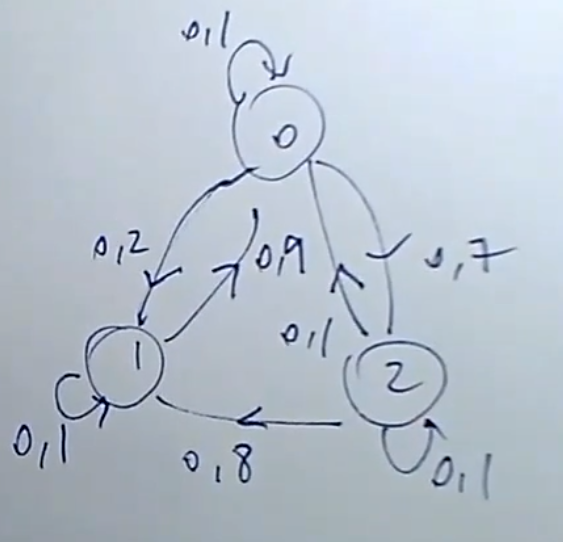 0,1
0
0,2
0,9
0,7
0,1
1
2
0,1
0,8
0,1